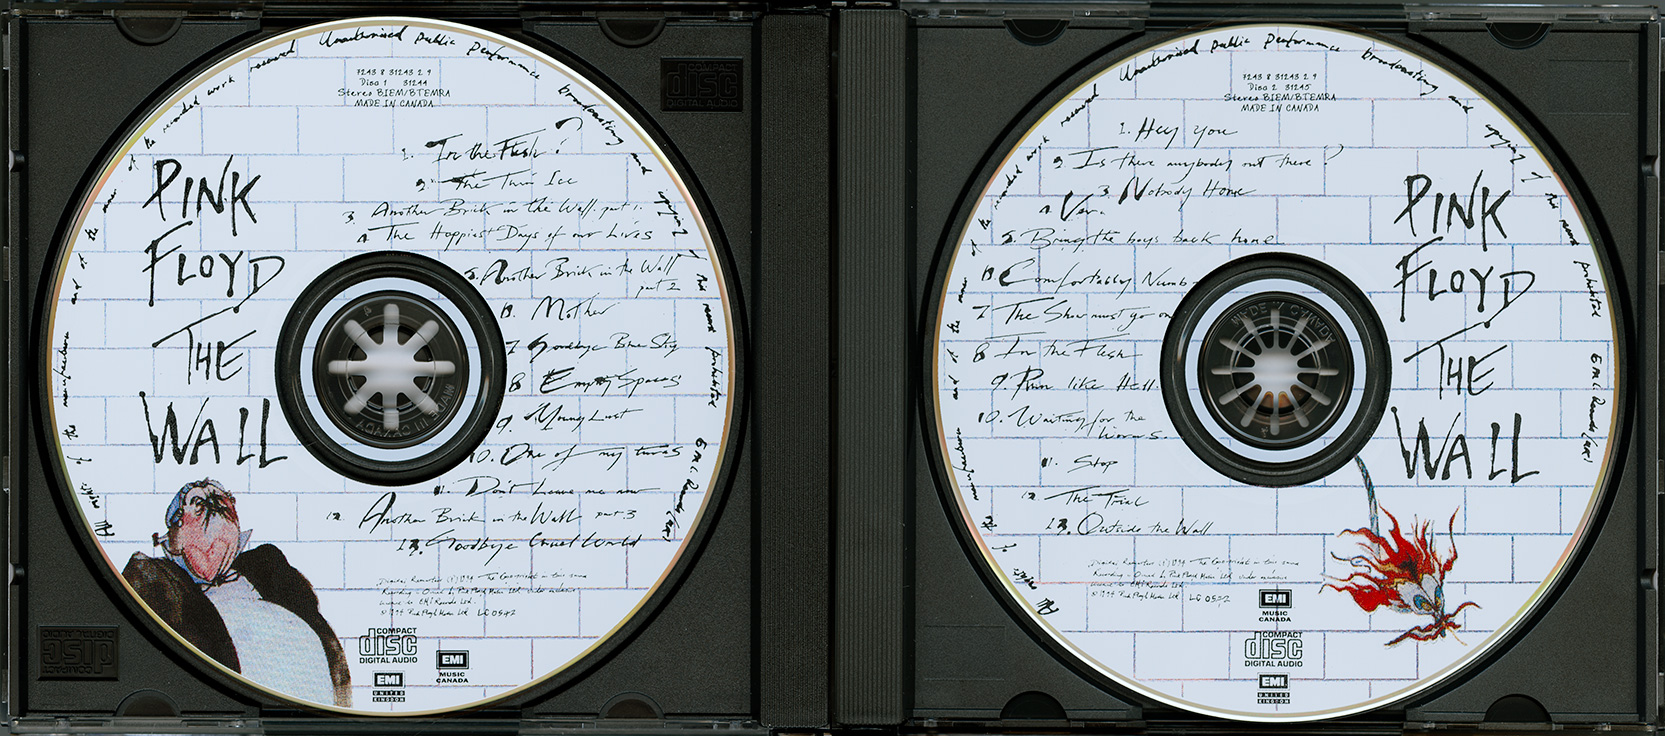 My rights of the manufacture and of the owner of the recorded work reserved Unauthorised public performance broadcasting and copying of this record prohibited EMI Records (UK)
7243 8 31243 2 9
Disc 1 31244
Stereo BIEM/BTEMRA
MADE IN CANADA
PINK
FLOYD
THE
WALL
1. In the Flesh?
2. The Thin Ice
3. Another Brick in the Wall. part 1.
4. The Happiest Days of our Lives
5. Another Brick in the Wall
part 2
6. Mother
7. Goodbye Blue Sky
8 Empty Spaces
9. Young Lust
10. One of my turns
11. Don't Leave me now
12. Another Brick in the Wall part 3
13. Goodbye Cruel World
Digital Remaster (P) 1994 The Copyright in this sound
Recording is Owned by Pink Floyd Music Ltd. under exclusive
licence to EMI Records Ltd.
© 1994 Pink Floyd Music Ltd. LC 0542
COMPACT
disc
DIGITAL AUDIO
EMI
UNITED
KINGDOM
EMI
MUSIC
CANADA
COMPACT
disc
DIGITAL AUDIO
COMPACT
disc
DIGITAL AUDIO
MADE IN CANADA
4
of the manufacture and of the owner of the recorded work reserved Unauthorised public performance broadcasting and copying of this record prohibited EMI Records (UK)
7243 8 31243 2 9
Disc 2 31245
Stereo BIEM/BTEMRA
MADE IN CANADA
1. Hey You
2. Is there anybody out there?
3. Nobody Home
4. Vera
5. Bring the boys back home
6 Comfortably Numb
7 The Show must go on
8 In the Flesh
9. Run like Hell
10. Waiting for the
Worms.
11. Stop
12. The Trial
13. Outside the Wall
PINK
FLOYD
THE
WALL
Digital Remaster (P) 1994 The Copyright in this sound
Recording is Owned by Pink Floyd Music Ltd. under exclusive
licence to EMI Records Ltd.
© 1994 Pink Floyd Music Ltd. LC 0542
EMI
MUSIC
CANADA
COMPACT
disc
DIGITAL AUDIO
EMI
UNITED
KINGDOM
MADE IN CANADA